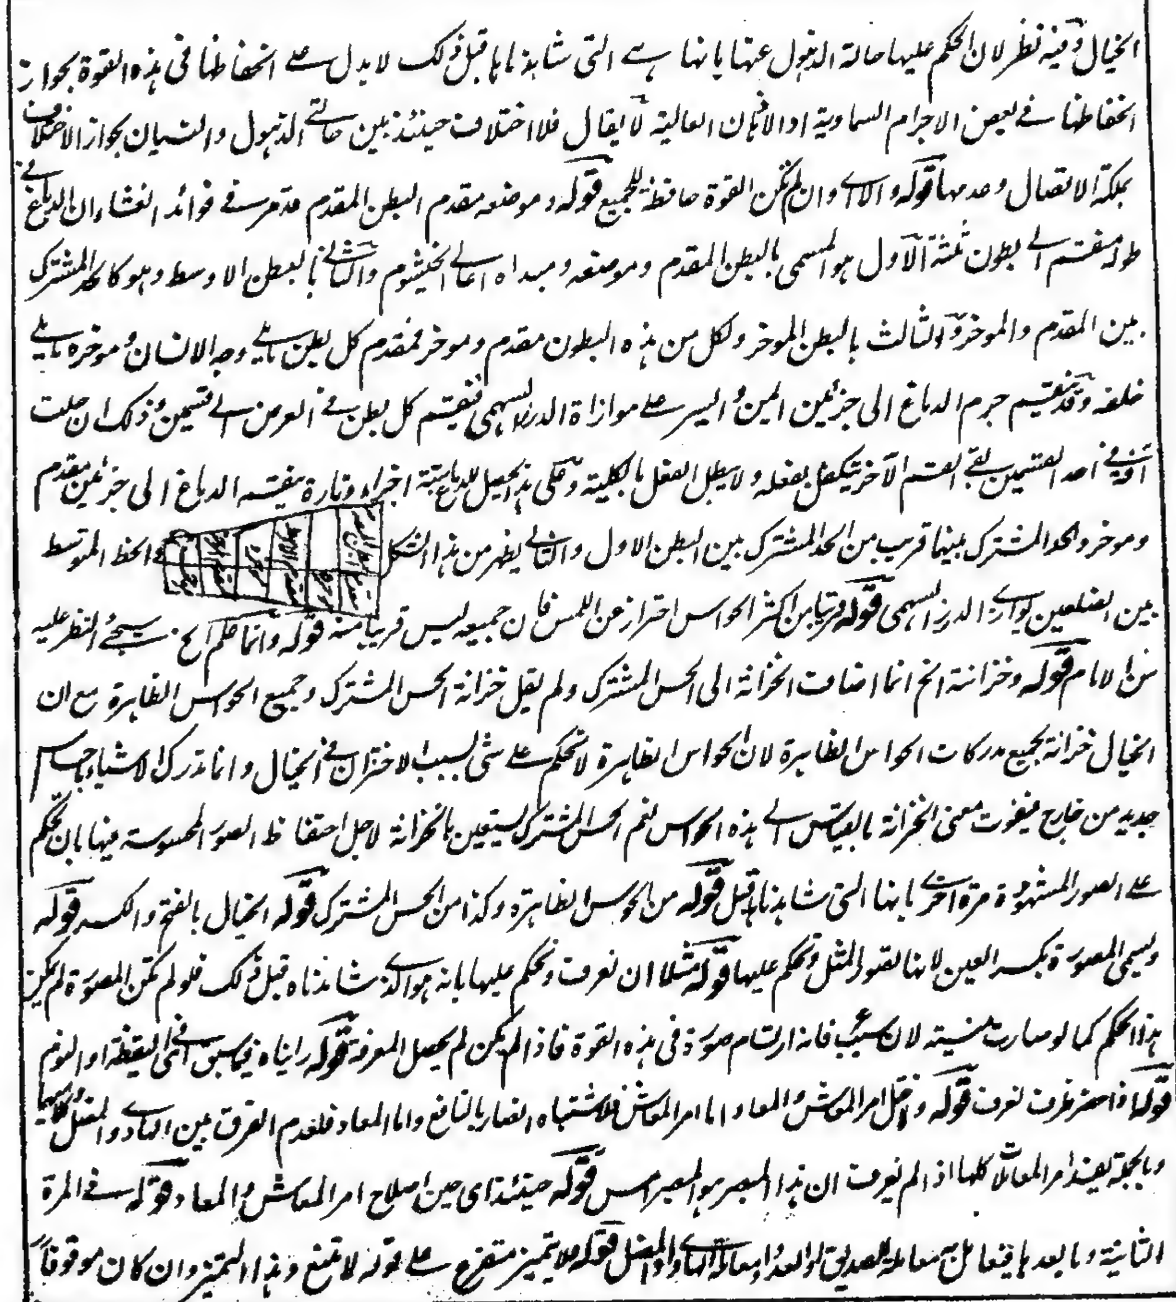 الخيال وفيه نظر لان الحكم عليها حالة الذهول عنها بانها هے التى شاهدناها قبل ذلك لا يدل علے انحفاظها فى هذه القوة بجواز
انحفاظها فے بعض الاجرام السماوية او الاذهان العالية لا يقال فلا اختلاف حينئذ بين حالتے الذهول والنسيان بجواز الاختلاف
بملكة الاتصال وعدمها قوله والا اے وان لم تكن القوة حافظة للجميع قوله وموضعه مقدم البطن المقدم قد مر فے فوائد الغشاء ان الدماغ فے
طوله منقسم الے بطون ثلثة الاول هو المسمى بالبطن المقدم وموضعه ومبداه اعالے الخيشوم والثانے بالبطن الاوسط وهو كالحد المشترك
بين المقدم والموخر والثالث بالبطن الموخر ولكل من هذه البطون مقدم وموخر فمقدم كل بطن ما يلے وجه الانسان وموخره ما يلے
خلفه وقد ينقسم جرم الدماغ الى جزئين ايمن وايسر علے موازاة الدرز السهمى فينقسم كل بطن فے العرض الے قسمين وذلك ان حلت
آفة فے احد القسمين بقے القسم الآخر يتكفل بفعله ولا يبطل الفعل بالكلية وعلى هذا يحصل للدماغ ستة اجزاء وتارة ينقسم الدماغ الى جزئين مقدم
وموخر والحد المشترك بينهما قريب من الحد المشترك بين البطن الاول والثانے يظهر من هذا الشكل والخط المتوسط
بين الضلعين يوازے الدرز السهمى قوله قريبا من اكثر الحواس احتراز عن اللمس فان جميعه ليس قريبا منه قوله وانما حكم الخ سيجئ النظر عليه
من الامام قوله وخزانته الخ انما اضاف الخزانة الى الحس المشترك ولم يقل خزانة الحس المشترك وجميع الحواس الظاهرة مع ان
الخيال خزانة لجميع مدركات الحواس الظاهرة لان الحواس الظاهرة لا تحكم علے شى بسبب الاختزان فے الخيال وانما تدرك الاشياء باحساس
جديد من خارج فيفوت معنى الخزانة بالقياس الے هذه الحواس نعم الحس المشترك يستعين بالخزانة لاجل احتفاظ الصور المحسوسة فيها بان تحكم
علے الصور المشهودة مرة اخرے بانها التى شاهدناها قبل قوله من الحواس الظاهرة وكذا من الحس المشترك قوله الخيال بالفتح والكسر قوله
ويسمى المصورة بكسر العين لانها تصور المثل وتحكم عليها قوله مثلا ان نعرف ونحكم عليها بانه هو الذے شاهدناه قبل ذلك فلو لم تكن المصورة لم يكن
هذا الحكم كما لو صارت منسية لان فانه ارتسام صورة فى هذه القوة فاذا لم يكن لم يحصل المعرفة قوله رايناه فيما سبق اى فے اليقظة او النوم
قوله نعرف قوله واختل امر المعاش والمعاد اما امر المعاش فلاشتباه الضار بالنافع واما المعاد فلعدم الفرق بين الهادے والمضل
وبالجملة يفسد امر المعاملات كلها اذ لم نعرف ان هذا المبصر هو المبصر امس قوله حينئذ اى حين اصلاح امر المعاش والمعاد قوله فے المرة
الثانية وما بعدها فيعامل معاملة الصديق او العدو او معاملة الهادے والمضل قوله فلا يتميز متفرع علے قوله لا تمنع وهذا التميز وان كان موقوفا